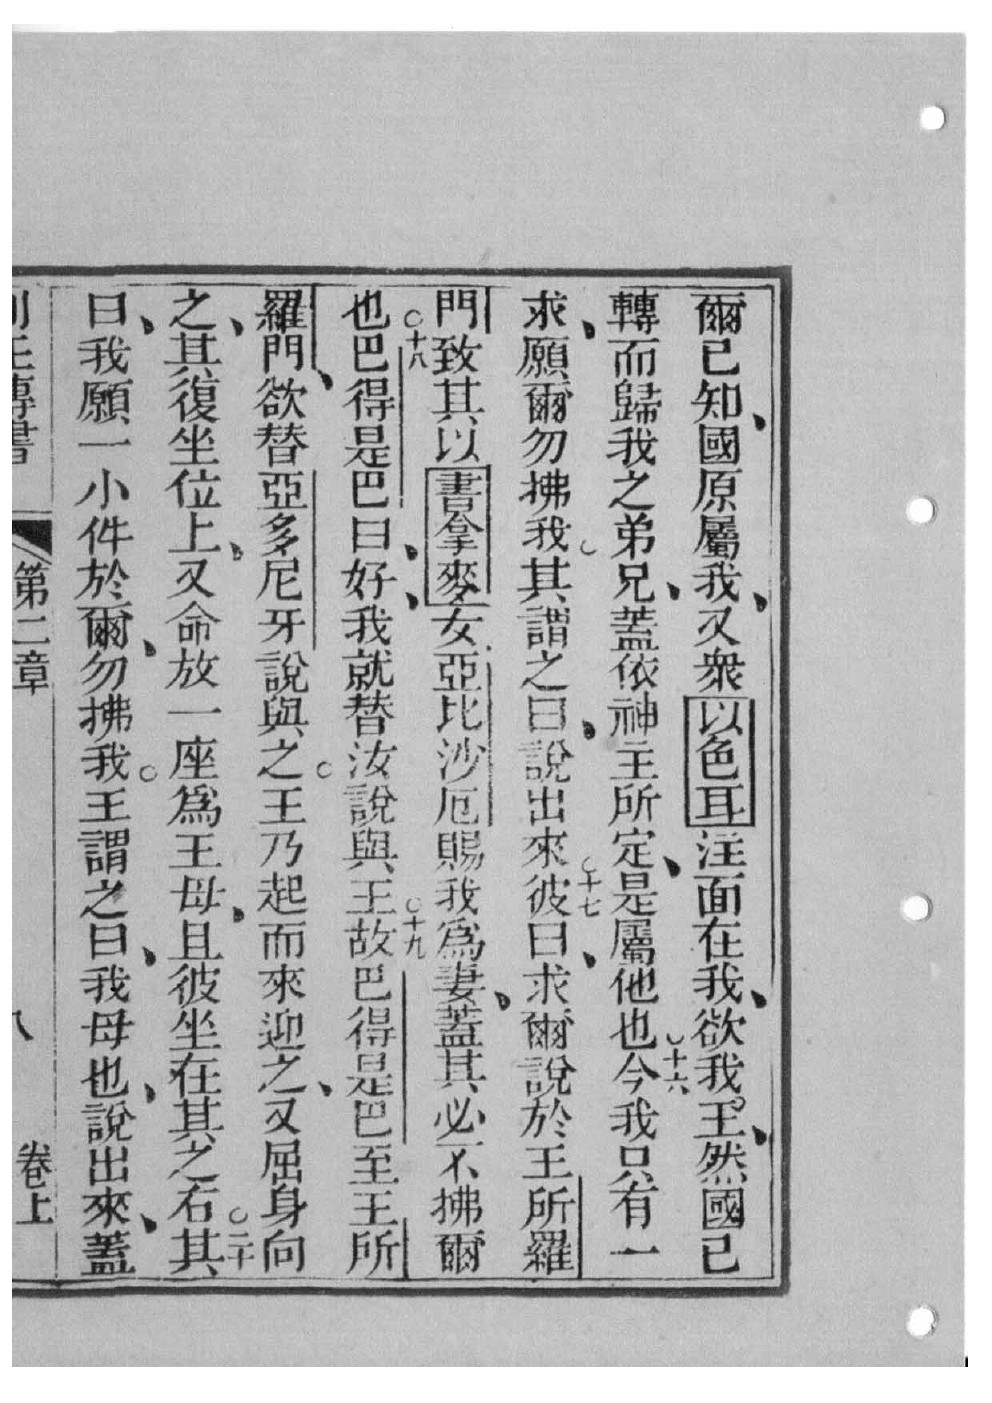 爾已知、國原屬我、又衆以色耳注面在我、欲我王、然國已
轉而歸我之弟兄、蓋依神主所定、是屬他也○十六今我只有一
求、願爾勿拂我○其謂之曰、說出來○十七彼曰、求爾說於王所羅
門致其以書拿麥女亞比沙厄賜我爲妻、蓋其必不拂爾
也○十八巴得是巴曰、好、我就替汝說與王○十九故巴得是巴至王所
羅門、欲替亞多尼牙說與之○王乃起而來迎之、又屈身向
之、其復坐位上、又命放一座爲王母、且彼坐在其之右○二十其
曰、我願一小件於爾、勿拂我○王謂之曰、我母也、說出來、蓋
列王傳書 第二章 八 卷上